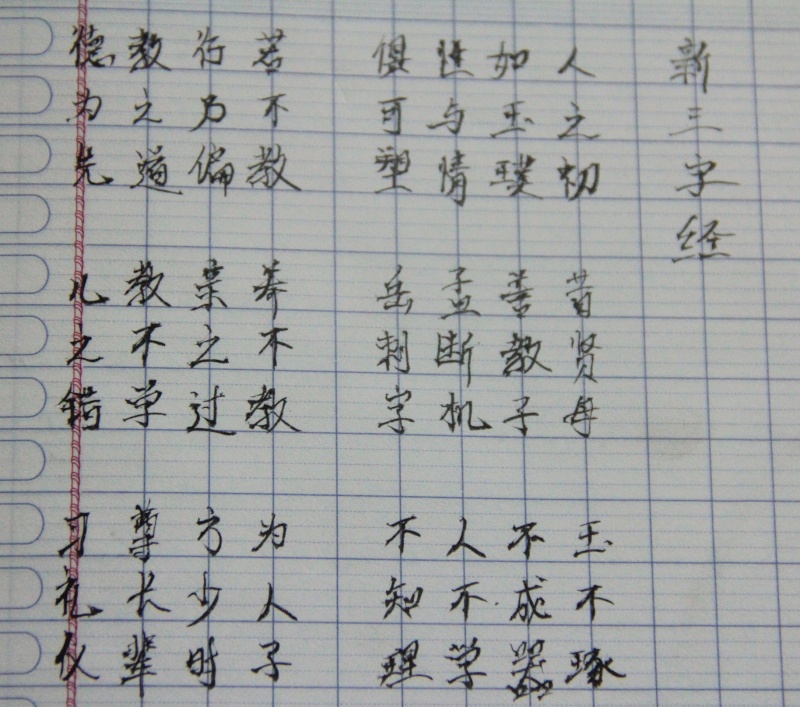 新三字经
人之初
如玉璞
性与情
俱可塑
若不教
行乃偏
教之道
德为先
昔贤母
善教子
孟断机
岳刺字
养不教
亲之过
教不学
儿之错
玉不琢
不成器
人不学
不知理
为人子
方少时
尊长辈
习礼仪